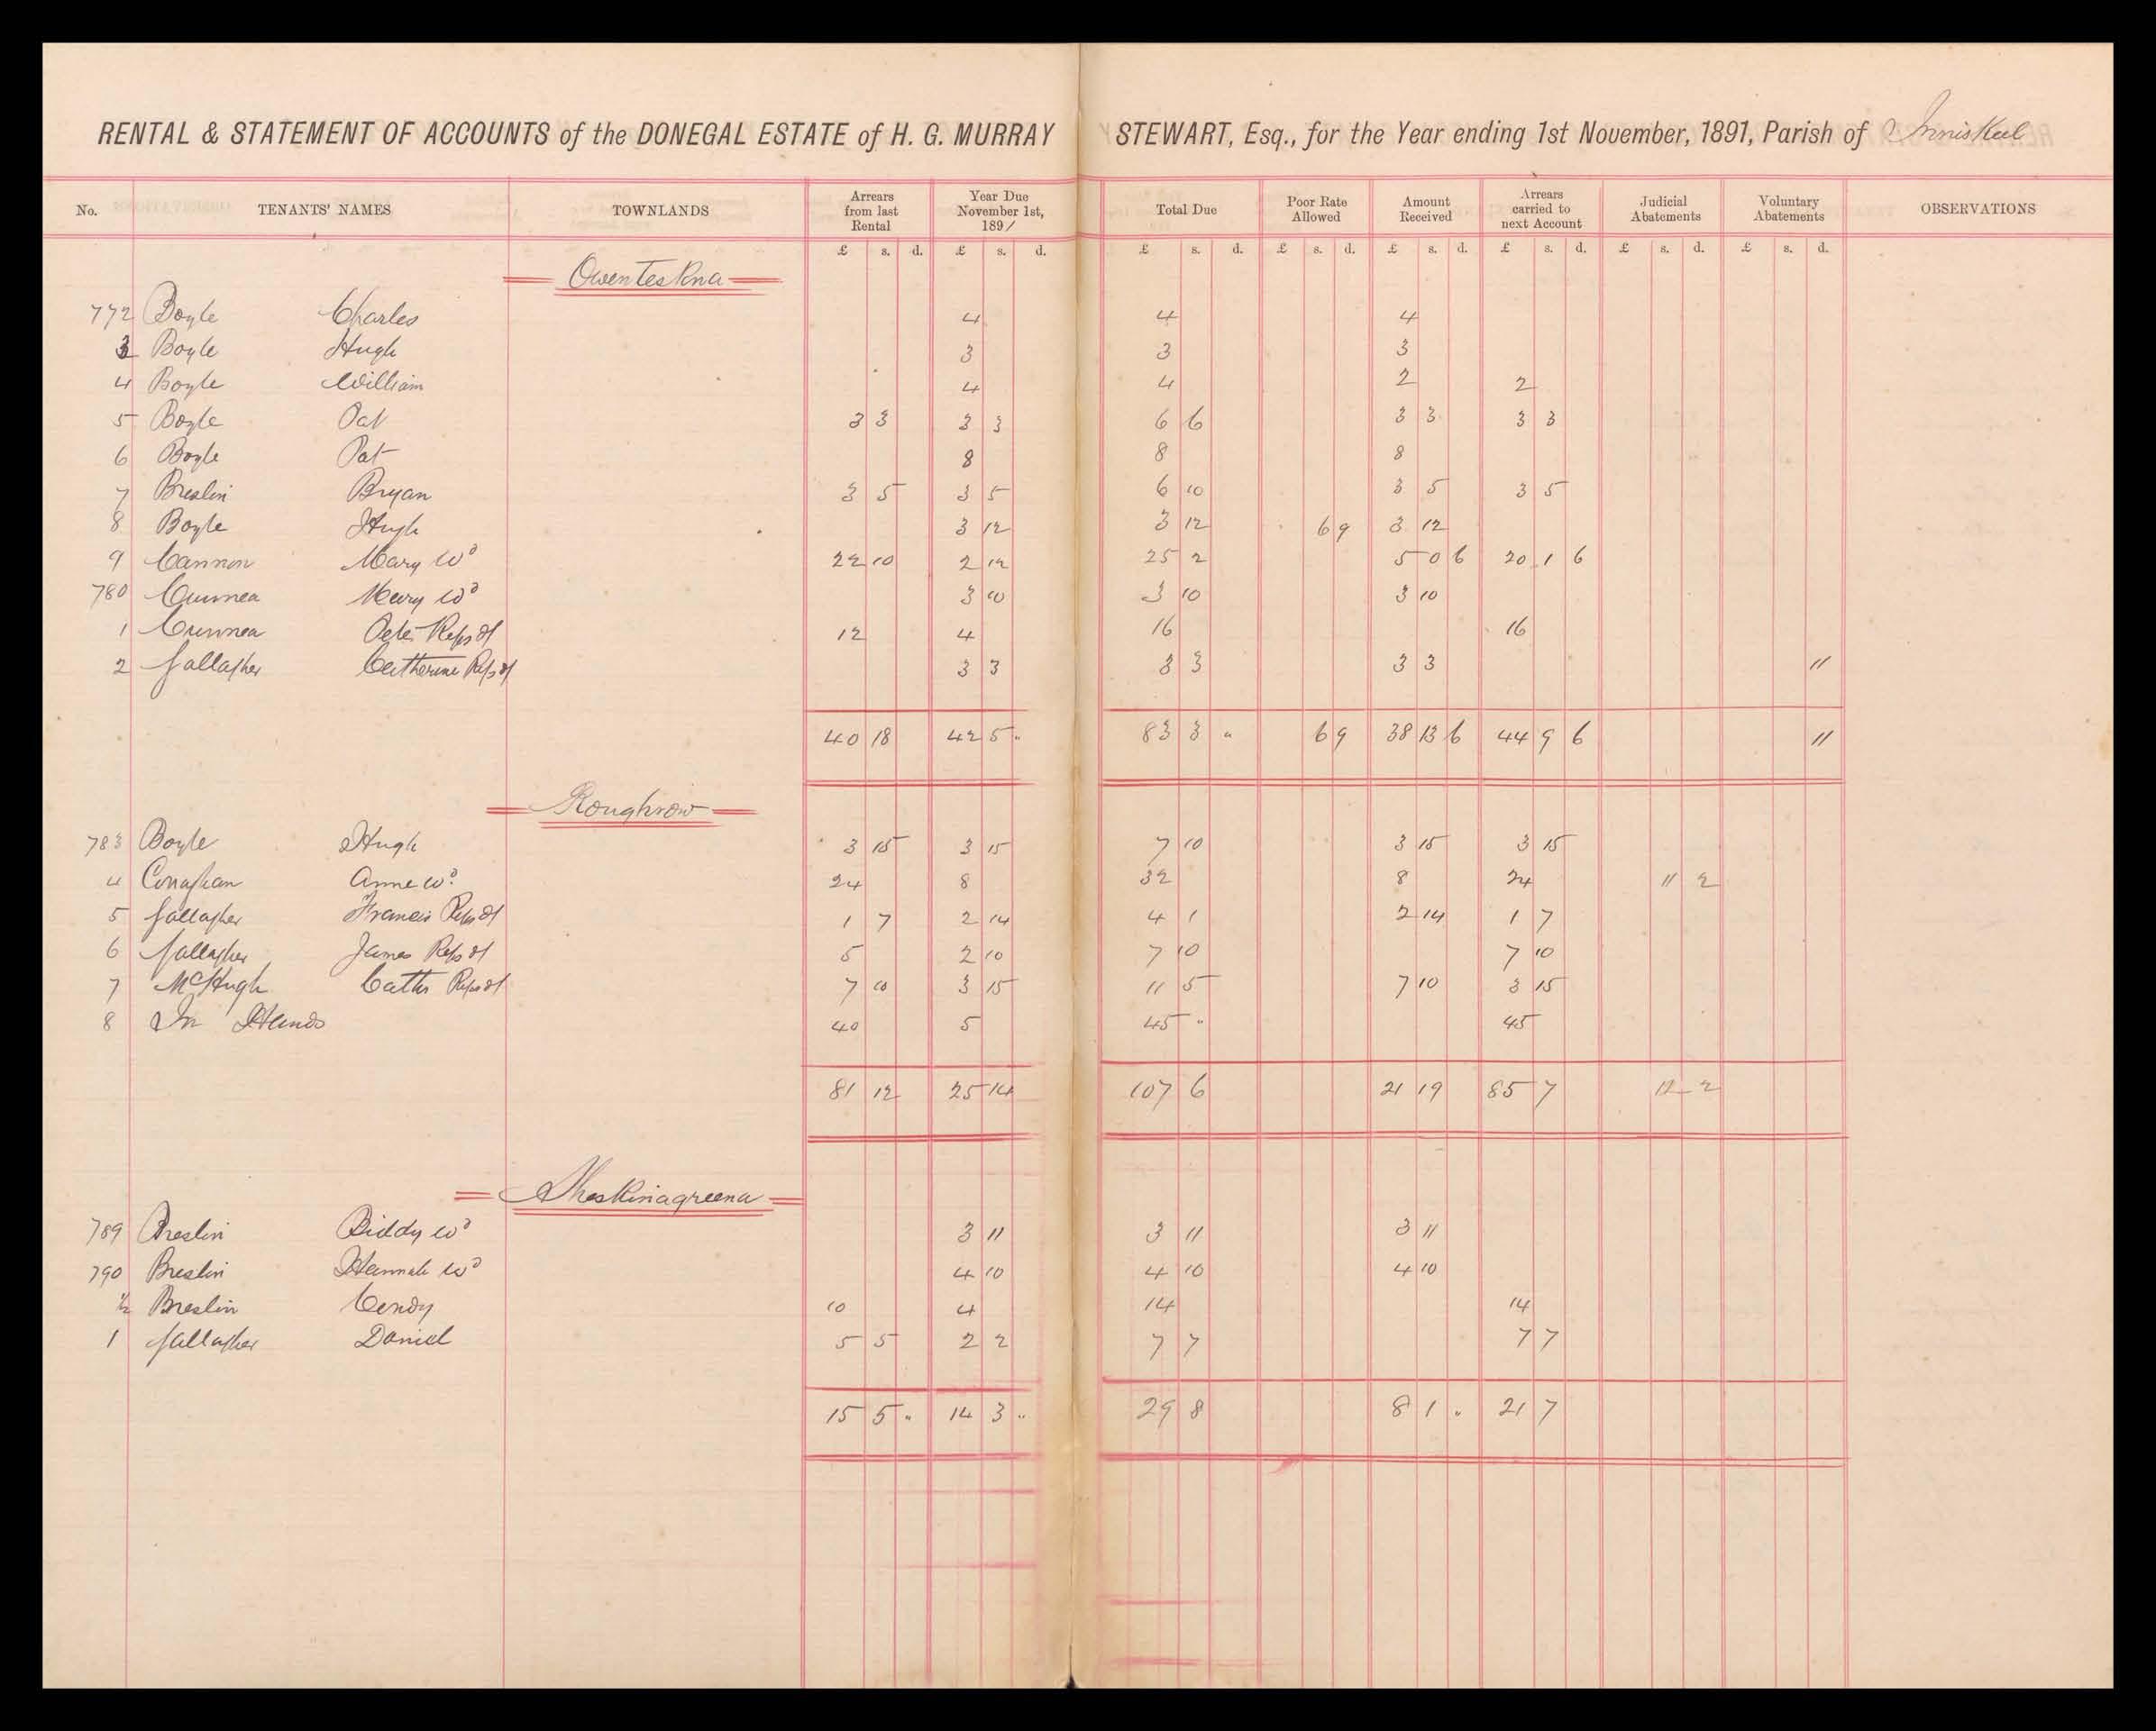 RENTAL & STATEMENT OF ACCOUNTS of the DONEGAL ESTATE of H. G. MURRAY STEWART, Esq., for the Year ending 1st November, 1891, Parish of Inniskeel
No. TENANTS' NAMES TOWNLANDS Arrears from last Rental Year Due November 1st, 1891 Total Due Poor Rate Allowed Amount Received Arrears carried to next Account Judicial Abatements Voluntary Abatements OBSERVATIONS
£ s. d. £ s. d. £ s. d. £ s. d. £ s. d. £ s. d. £ s. d. £ s. d.
Owenteskna
772 Boyle Charles 4 4 4
3 Boyle Hugh 3 3 3
4 Boyle William 4 4 2 2
5 Boyle Pat 3 3 3 3 6 6 3 3 3 3
6 Boyle Pat 8 8 8
7 Breslin Bryan 3 5 3 5 6 10 3 5 3 5
8 Boyle Hugh 3 12 3 12 6 9 3 12
9 Cannon Mary Wd 22 10 2 12 25 2 5 0 6 20 1 6
780 Cunnea Mary Wd 3 10 3 10 3 10
1 Cunnea Peter Reps of 12 4 16 16
2 Gallagher Catherine Reps of 3 3 3 3 3 3 "
40 18 42 5 " 83 3 " 6 9 38 13 6 44 9 6 "
Roughrow
783 Boyle Hugh 3 15 3 15 7 10 3 15 3 15
4 Conaghan Anne Wd 24 8 32 8 24 11 2
5 Gallagher Francis Reps of 1 7 2 14 4 1 2 14 1 7
6 Gallagher James Reps of 5 2 10 7 10 7 10
7 McHugh Cathr Reps of 7 10 3 15 11 5 7 10 3 15
8 In Hands 40 5 45 " 45
81 12 25 14 107 6 21 19 85 7 2
Sheskinagreena
789 Breslin Biddy Wd 3 11 3 11 3 11
790 Breslin Hannah Wd 4 10 4 10 4 10
½ Breslin Condy 10 4 14 14
1 Gallagher Daniel 5 5 2 2 7 7 7 7
15 5 " 14 3 " 29 8 8 1 " 21 7